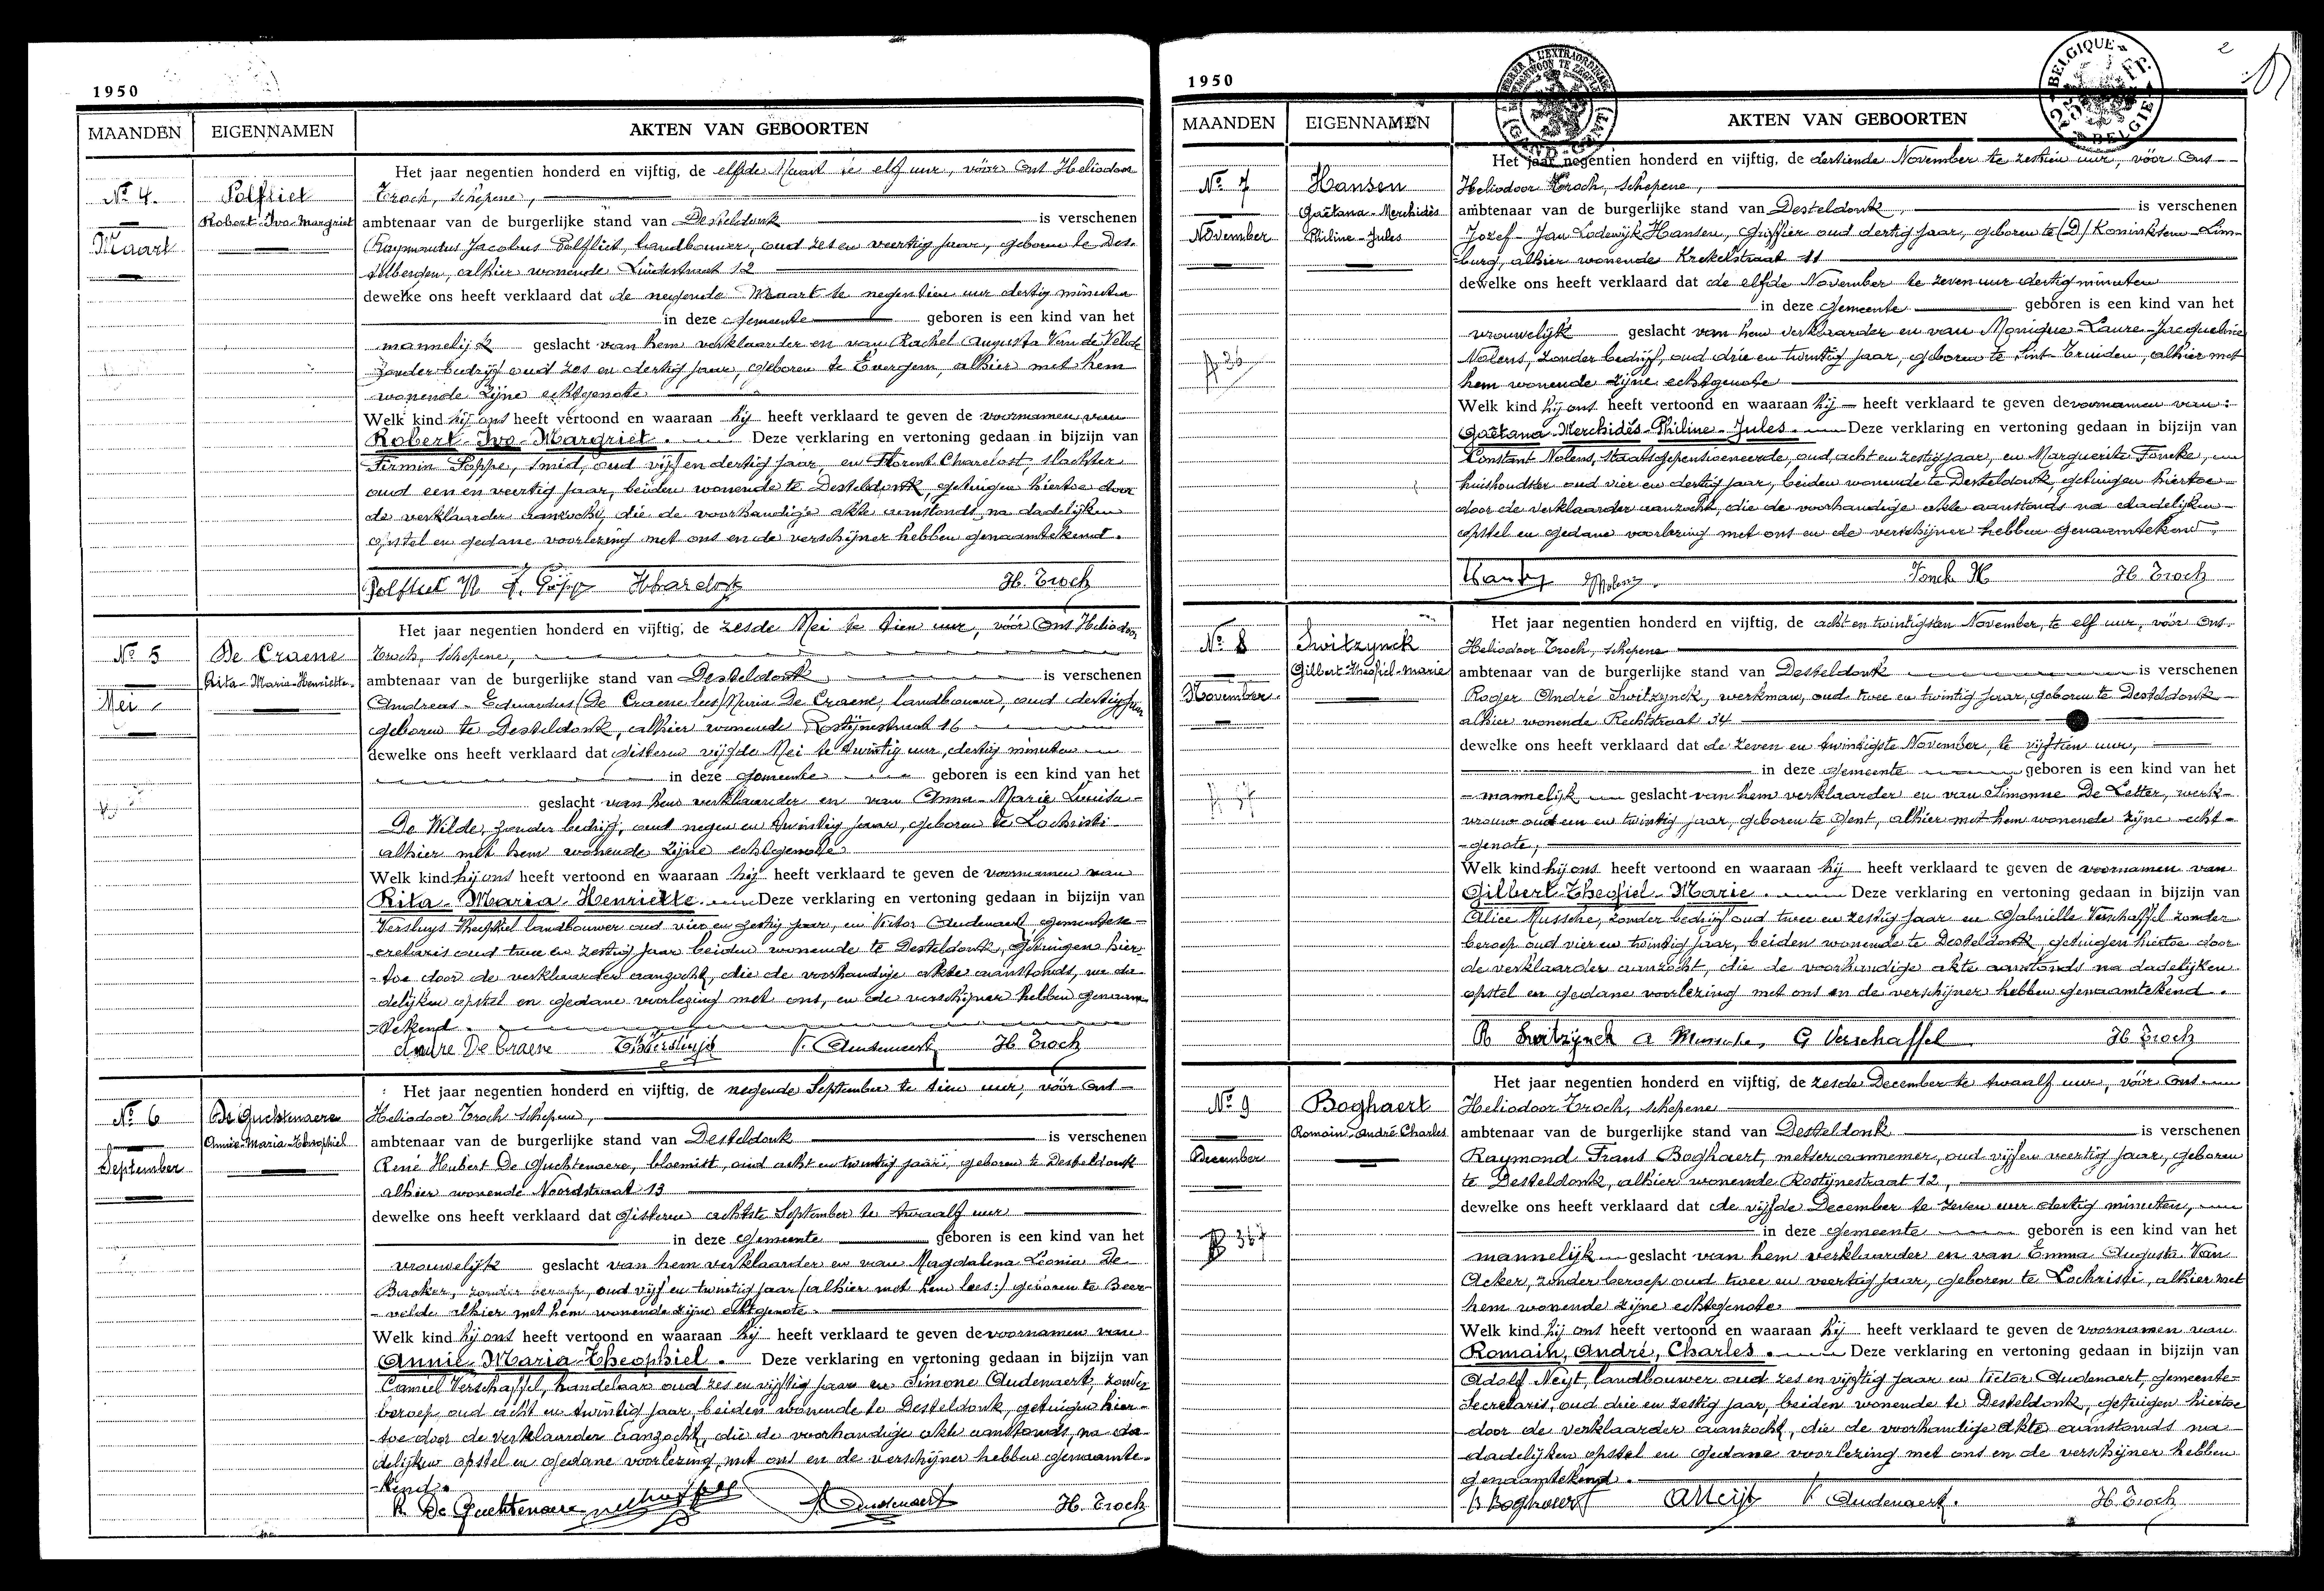 1950
MAANDEN EIGENNAMEN AKTEN VAN GEBOORTEN
No 4.
Maart
Polfliet
Robert-Ivo-Margriet
Het jaar negentien honderd en vijftig, de elfde Maart te elf uur, vóór Ons Heliodoor
Troch, schepene,
ambtenaar van de burgerlijke stand van Desteldonk is verschenen
Raymondus Jacobus Polfliet, landbouwer, oud zes en veertig jaar, geboren te Des-
selbergen, alhier wonende Lindestraat 12
dewelke ons heeft verklaard dat de negende Maart te negentien uur dertig minuten
in deze Gemeente geboren is een kind van het
mannelijk geslacht van hem verklaarder en van Rachel Augusta Van de Velde
zonder bedrijf oud zes en dertig jaar, geboren te Evergem, alhier met hem
wonende zijne echtgenote
Welk kind hij ons heeft vertoond en waaraan hij heeft verklaard te geven de voornamen van
Robert-Ivo-Margriet. Deze verklaring en vertoning gedaan in bijzijn van
Firmin Poppe, smid, oud vijf en dertig jaar, en Florent Chardost, slachter
oud een en veertig jaar, beiden wonende te Desteldonk, getuigen hiertoe door
de verklaarder aanzocht, die de voorhandige akte aanstonds na dadelijken
opstel en gedane voorlezing met ons en de verschijner hebben genaamtekend.
Polfliet R F. Poppe H. Troch
No 5
Mei
De Craene
Rita-Maria-Henriette
Het jaar negentien honderd en vijftig, de zesde Mei te tien uur, vóór Ons Heliodoor
Troch, schepene,
ambtenaar van de burgerlijke stand van Desteldonk is verschenen
Andreas-Eduardus (De Craene lees) Maria De Craene, landbouwer, oud dertig jaar
geboren te Desteldonk, alhier wonende Rostijnestraat 16
dewelke ons heeft verklaard dat gisteren vijfde Mei te twintig uur, dertig minuten
in deze gemeente geboren is een kind van het
geslacht van hem verklaarder en van Anna-Marie Louisa-
De Wilde, zonder bedrijf, oud negen en twintig jaar, geboren te Lochristi
alhier met hem wonende zijne echtgenote
Welk kind hij ons heeft vertoond en waaraan hij heeft verklaard te geven de voornamen van
Rita-Maria-Henriette. Deze verklaring en vertoning gedaan in bijzijn van
Versluys Theophiel landbouwer oud vier en zestig jaar, en Victor Audenaert, gemeentese-
cretaris oud twee en zestig jaar beiden wonende te Desteldonk, getuigen hier-
-toe door de verklaarder aanzocht, die de voorhandige akte aanstonds, na da-
delijken opstel en gedane voorlezing met ons, en de verschijner hebben genaam-
-tekend.
Andre De Craene V. Audenaert H. Troch
No 6
September
De Guchtenaere
Annie-Maria-Theophiel
Het jaar negentien honderd en vijftig, de negende September te tien uur, vóór Ons-
Heliodoor Troch schepene,
ambtenaar van de burgerlijke stand van Desteldonk is verschenen
René Hubert De Guchtenaere, bloemist, oud acht en twintig jaar, geboren te Desteldonk
alhier wonende Noordstraat 13
dewelke ons heeft verklaard dat gisteren achtste September te twaalf uur
in deze gemeente geboren is een kind van het
vrouwelijk geslacht van hem verklaarder en van Magdalena Leonia De
Backer, zonder beroep, oud vijf en twintig jaar (alhier met hem lees:) geboren te Beer-
-velde alhier met hem wonende zijne echtgenote.
Welk kind hij ons heeft vertoond en waaraan hij heeft verklaard te geven de voornamen van
Annie-Maria-Theophiel. Deze verklaring en vertoning gedaan in bijzijn van
Camiel Verschaffel, handelaar oud zes en vijftig jaar en Simone Audenaert, zonder
beroep oud acht en twintig jaar, beiden wonende te Desteldonk, getuigen hier-
-toe door de verklaarder aanzocht, die de voorhandige akte aanstonds, na da-
delijken opstel en gedane voorlezing, met ons en de verschijner hebben genaamte-
-kend.
R De Guchtenaere Verschaffel S Audenaert H. Troch
1950
2
BELGIQUE
25 Fr.
BELGIE
MAANDEN EIGENNAMEN AKTEN VAN GEBOORTEN
No 7
November
Hansen
Gaëtana-Merchidès
Philine-Jules
Het jaar negentien honderd en vijftig, de dertiende November te zestien uur, vóór Ons-
Heliodoor Troch, schepene,
ambtenaar van de burgerlijke stand van Desteldonk, is verschenen
Jozef-Jan Lodewijk Hansen, Griffier oud dertig jaar, geboren te (D) Koninksem-Lim-
burg, alhier wonende Krekelstraat 11
dewelke ons heeft verklaard dat de elfde November te zeven uur dertig minuten
in deze Gemeente geboren is een kind van het
vrouwelijk geslacht van hem verklaarder en van Monique-Laure-Jacqueline
Nolens, zonder bedrijf, oud drie en twintig jaar, geboren te Sint-Truiden, alhier met
hem wonende zijne echtgenote
Welk kind hij ons heeft vertoond en waaraan hij heeft verklaard te geven de voornamen van:
Gaëtana-Merchidès-Philine-Jules. Deze verklaring en vertoning gedaan in bijzijn van
Constant Nolens, staatsgepensioeneerde, oud acht en zestig jaar, en Marguerite Foncke,
huishoudster oud vier en dertig jaar, beiden wonende te Desteldonk, getuigen hiertoe
door de verklaarder aanzocht, die de voorhandige akte aanstonds na dadelijken
opstel en gedane voorlezing met ons en de verschijner hebben genaamtekend.
H. Troch
No 8
November
Switzynck
Gilbert-Theofiel-Marie
Het jaar negentien honderd en vijftig, de acht en twintigsten November, te elf uur, vóór Ons.
Heliodoor Troch, schepene
ambtenaar van de burgerlijke stand van Desteldonk is verschenen
Roger André Switzynck, werkman, oud twee en twintig jaar, geboren te Desteldonk
alhier wonende Rechtstraat 34
dewelke ons heeft verklaard dat de zeven en twintigste November, te vijftien uur,
in deze gemeente geboren is een kind van het
-mannelijk geslacht van hem verklaarder en van Simonne De Letter, werk-
vrouw oud een en twintig jaar, geboren te Gent, alhier met hem wonende zijne echt-
-genote,
Welk kind hij ons heeft vertoond en waaraan hij heeft verklaard te geven de voornamen van
Gilbert-Theofiel-Marie. Deze verklaring en vertoning gedaan in bijzijn van
Alice Mussche, zonder bedrijf oud twee en zestig jaar en Gabrielle Verschaffel zonder
beroep oud vier en twintig jaar, beiden wonende te Desteldonk, getuigen hiertoe door
de verklaarder aanzocht, die de voorhandige akte aanstonds na dadelijken
opstel en gedane voorlezing met ons en de verschijner hebben genaamtekend.
R Switzynck A Mussche, G Verschaffel H. Troch
No 9
December
Boghaert
Romain-André-Charles
Het jaar negentien honderd en vijftig, de zesde December te twaalf uur, vóór Ons
Heliodoor Troch, schepene
ambtenaar van de burgerlijke stand van Desteldonk is verschenen
Raymond Frans Boghaert, metser aannemer, oud vijf en veertig jaar, geboren
te Desteldonk, alhier wonende Rostijnestraat 12,
dewelke ons heeft verklaard dat de vijfde December te zeven uur dertig minuten,
in deze gemeente geboren is een kind van het
mannelijk geslacht van hem verklaarder en van Emma Augusta Van
Acker, zonder beroep oud twee en veertig jaar, geboren te Lochristi, alhier met
hem wonende zijne echtgenote
Welk kind hij ons heeft vertoond en waaraan hij heeft verklaard te geven de voornamen van
Romain, André, Charles. Deze verklaring en vertoning gedaan in bijzijn van
Adolf Neyt, landbouwer oud zes en vijftig jaar en Victor Audenaert, gemeente-
secretaris, oud drie en zestig jaar, beiden wonende te Desteldonk, getuigen hiertoe
door de verklaarder aanzocht, die de voorhandige akte aanstonds na
dadelijken opstel en gedane voorlezing met ons en de verschijner hebben
genaamtekend.
R Boghaert A Neijt V Audenaert. H. Troch